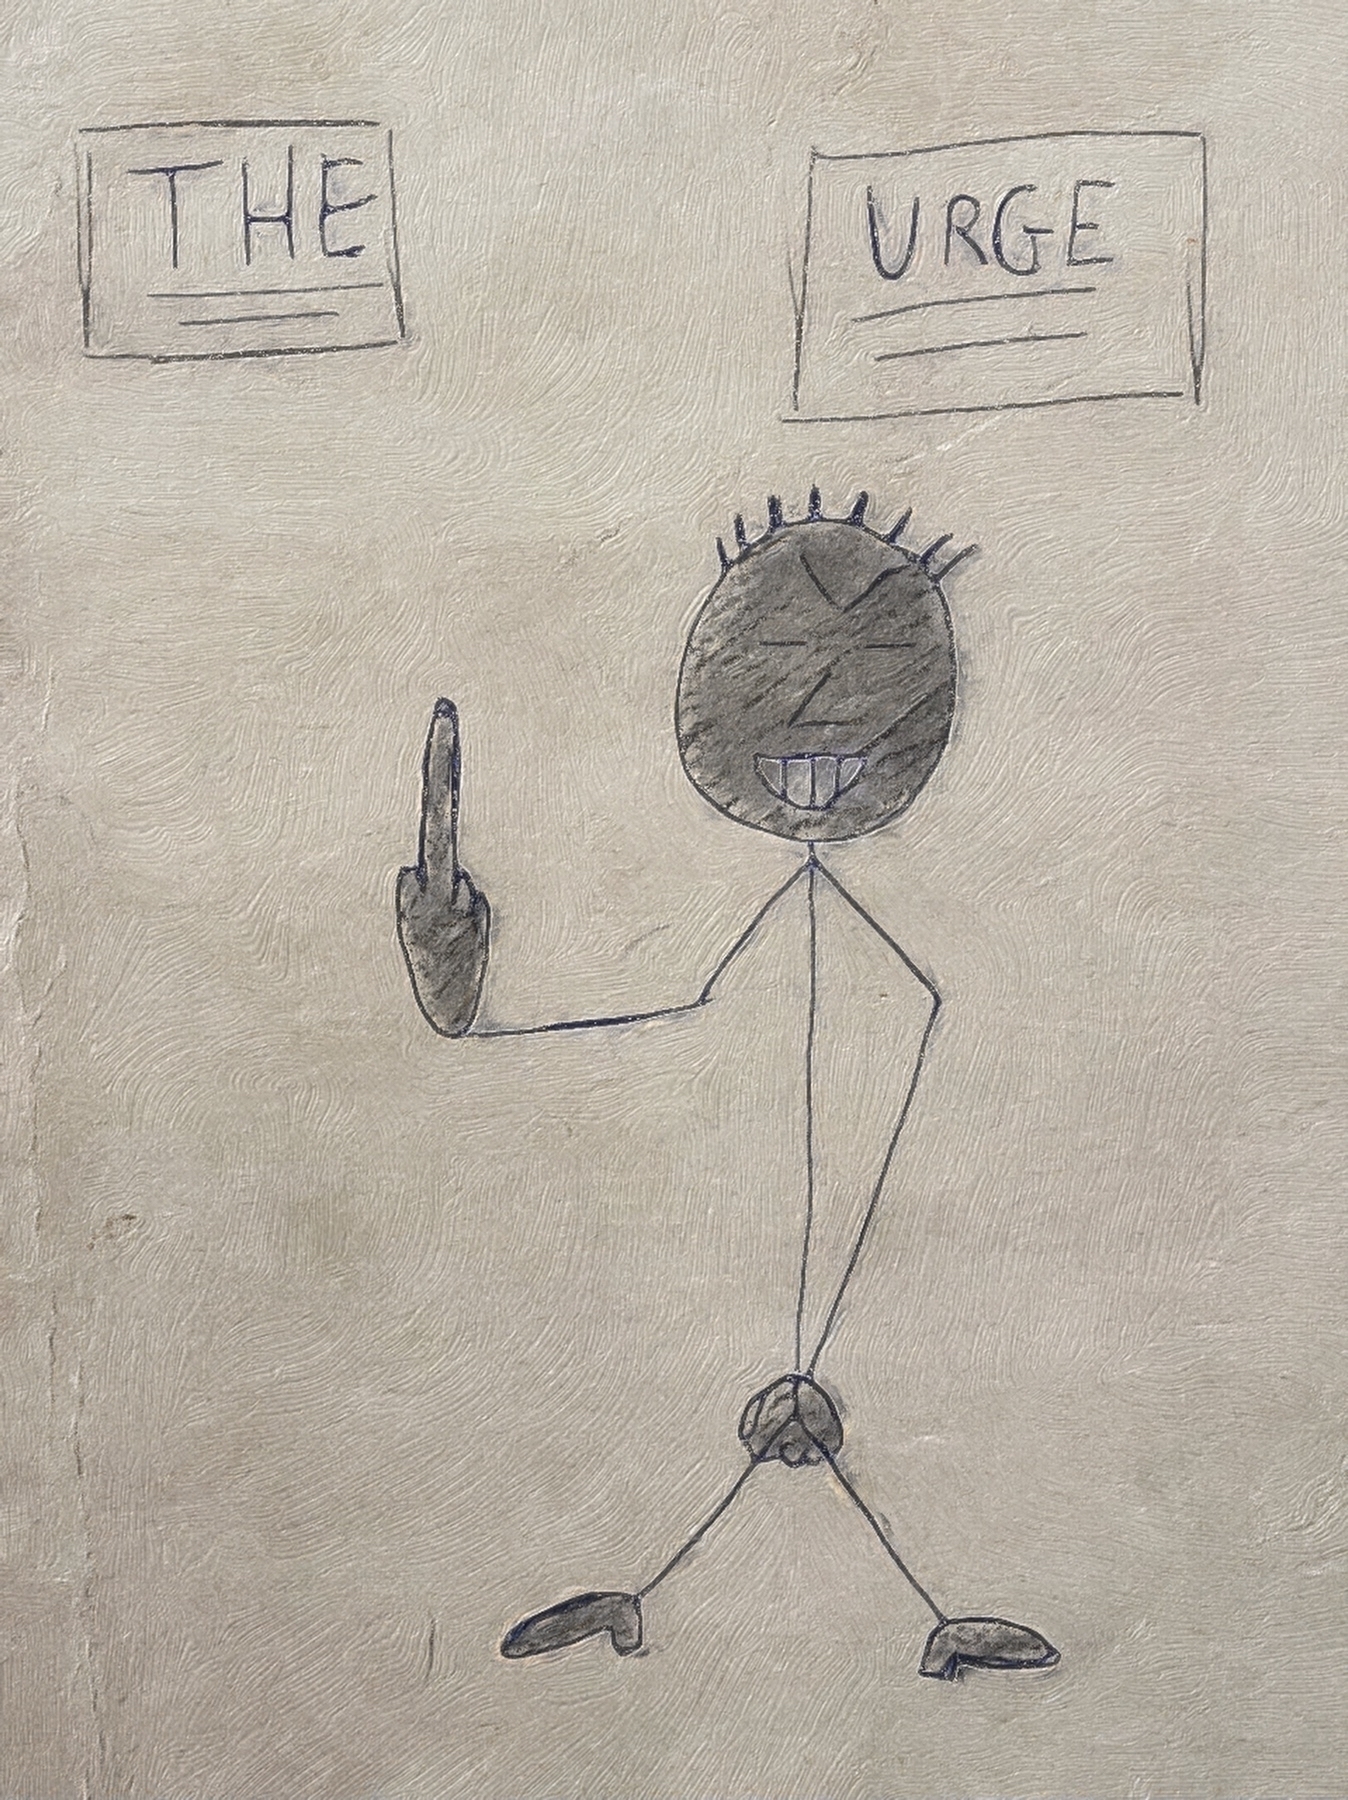 THE
URGE